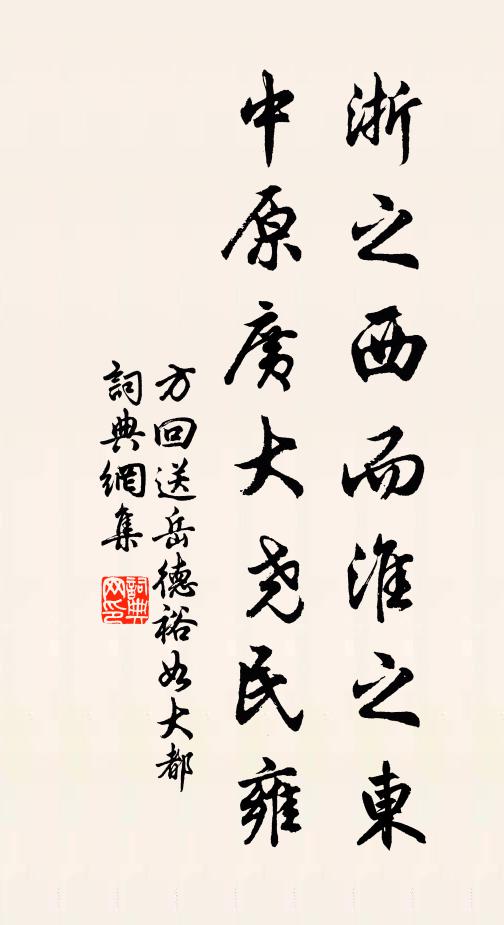 浙之西而淮之東
中原廣大堯民雍
方回送岳德裕如大都
詞典網集
詞典網印